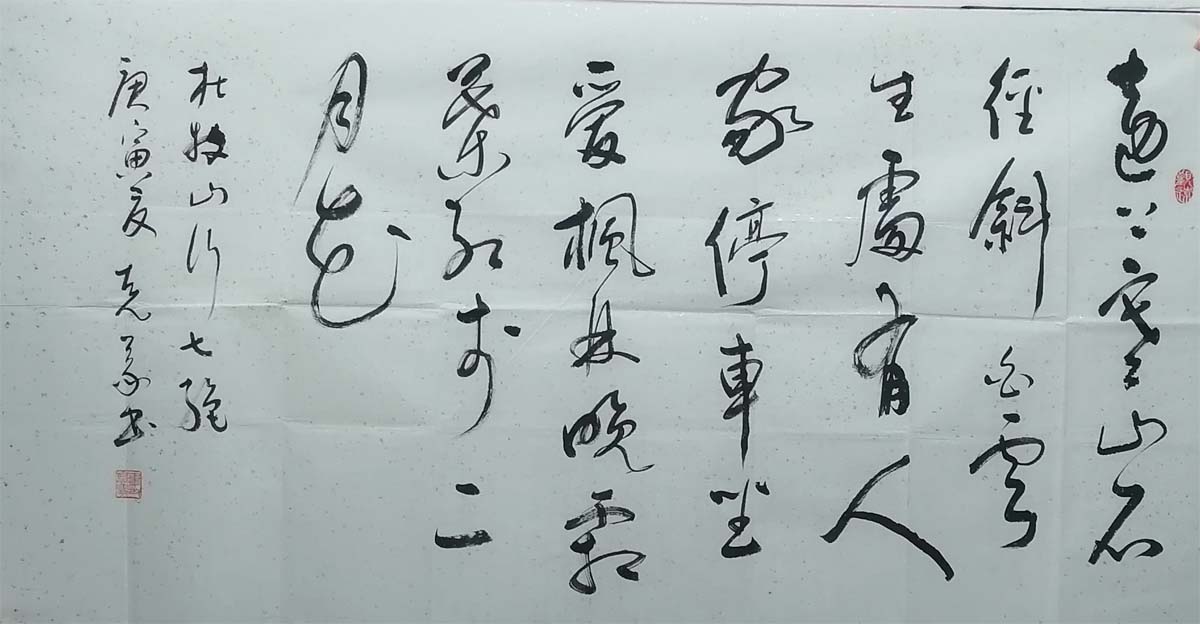 遠上寒山石
徑斜白雲
生處有人
家停車坐
愛楓林晚霜
葉紅於二
月花
杜牧山行七絕
庚寅夏 克義書